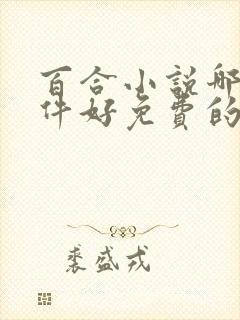 百合小说哪
件好免费的
裘盛戎